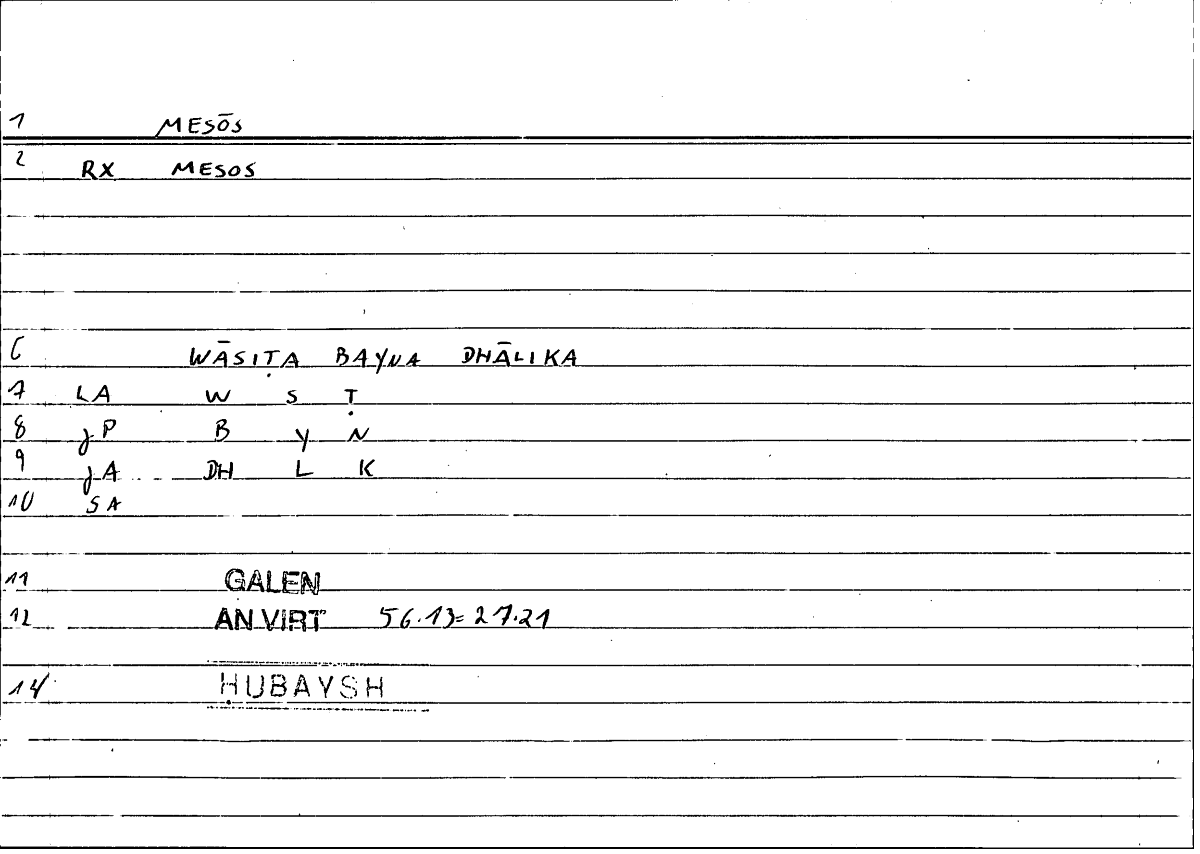 1 MESŌS
2 RX MESOS
6 WĀSIṬA BAYNA DHĀLIKA
7 LA W S Ṭ
8 JP B Y N
9 JA DH L K
10 SA
11 GALEN
12 AN VIRT 56.13=27.21
14 ḤUBAYSH